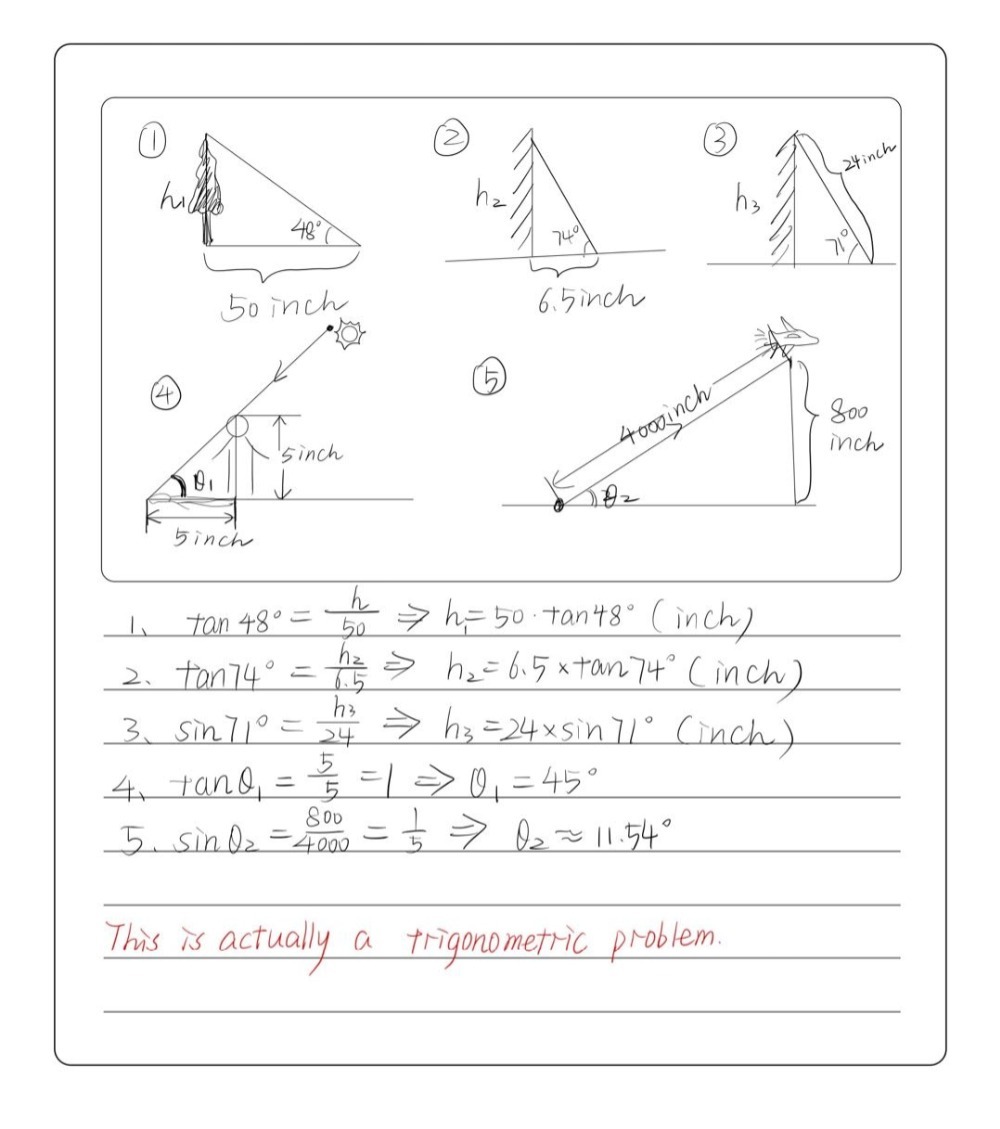 ①
②
③
h₁
48°
50 inch
h₂
74°
6.5inch
h₃
24inch
71°
④
θ₁
5inch
5inch
⑤
4000inch
θ₂
800
inch
1、 tan 48° = h/50 ⇒ h₁= 50 · tan48° (inch)
2. tan74° = h₂/6.5 ⇒ h₂= 6.5 × tan 74° (inch)
3、 sin71° = h₃/24 ⇒ h₃ =24×sin 71° (inch)
4、 tanθ₁ = 5/5 =1 ⇒ θ₁ = 45°
5. sinθ₂ = 800/4000 = 1/5 ⇒ θ₂ ≈ 11.54°
This is actually a trigonometric problem.